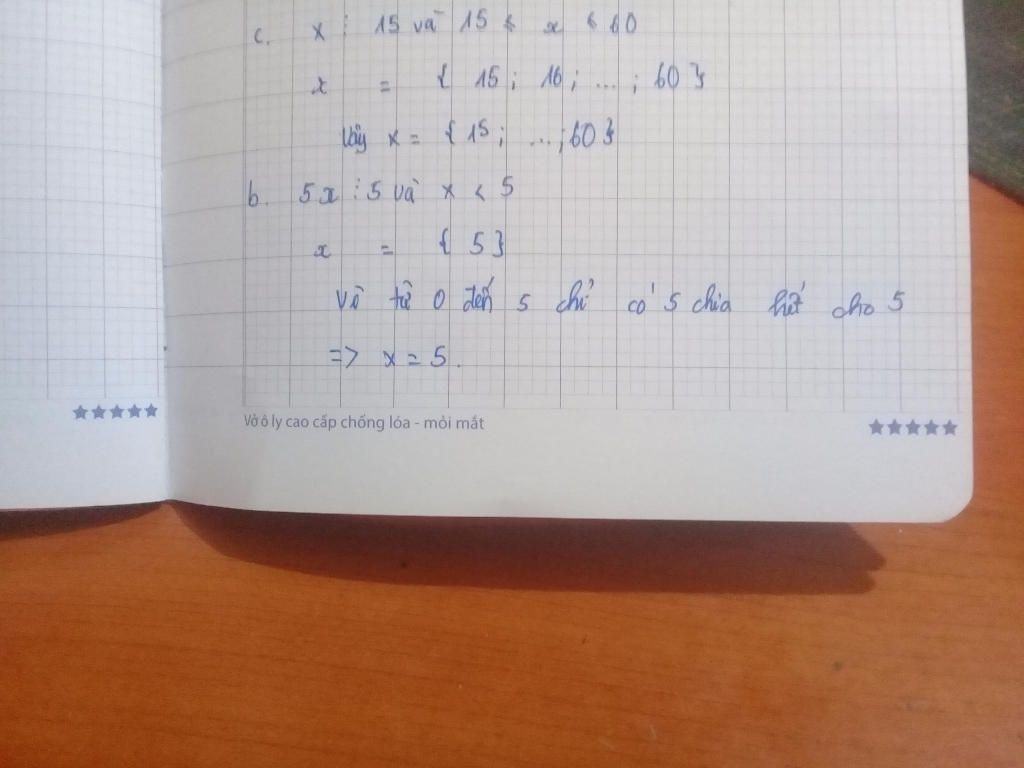 c. x ⋮ 15 và 15 < x < 60
x = { 15 ; 16 ; ... ; 60 }
Vậy x = { 15 ; ... ; 60 }
b. 5x ⋮ 5 và x < 5
x = { 5 }
Vì từ 0 đến 5 chỉ có 5 chia hết cho 5
=> x = 5.
Vở ô ly cao cấp chống lóa - mỏi mắt